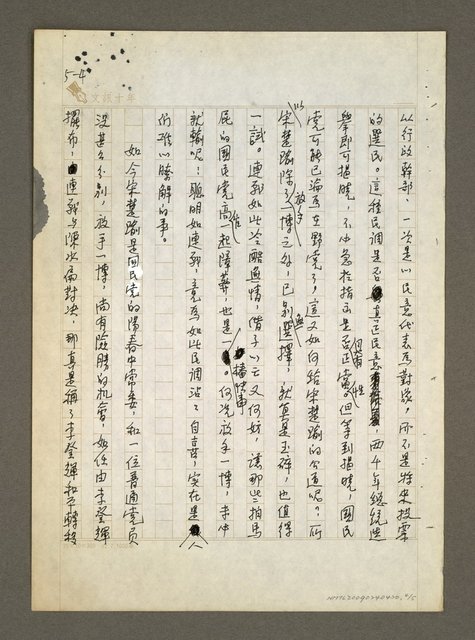 以行政幹部，一次是以民意代表為對象，所不是將來投票
的選民。這種民調是否真正民意，兩千年總統選
舉即可揭曉，不必急於指正是否正常。但等到揭曉，國民
黨可能已淪為在野黨了，這又如何給宋楚瑜的公道呢？所以
宋楚瑜除了放手一博之外，已別無選擇，就算是玉碎，也值得
一試。連戰如此冷酷無情，借予以云又何妨，讓那些拍馬
屁的國民黨高一起陪葬，也是一。何況放手一博，未必
就輸呢？聰明如連戰，竟為如此民調沾沾自喜，實在是人
們難以瞭解的事。
如今宋楚瑜是國民黨的陽春中常委，和一位普通黨員
沒甚麼分別，放手一博，尚有險勝的機會，如任由李登輝
擺布，連戰與陳水扁對決，那真是稱了李登輝和平轉移
5-4
文訊十年
NMTL20090240420, 4/5